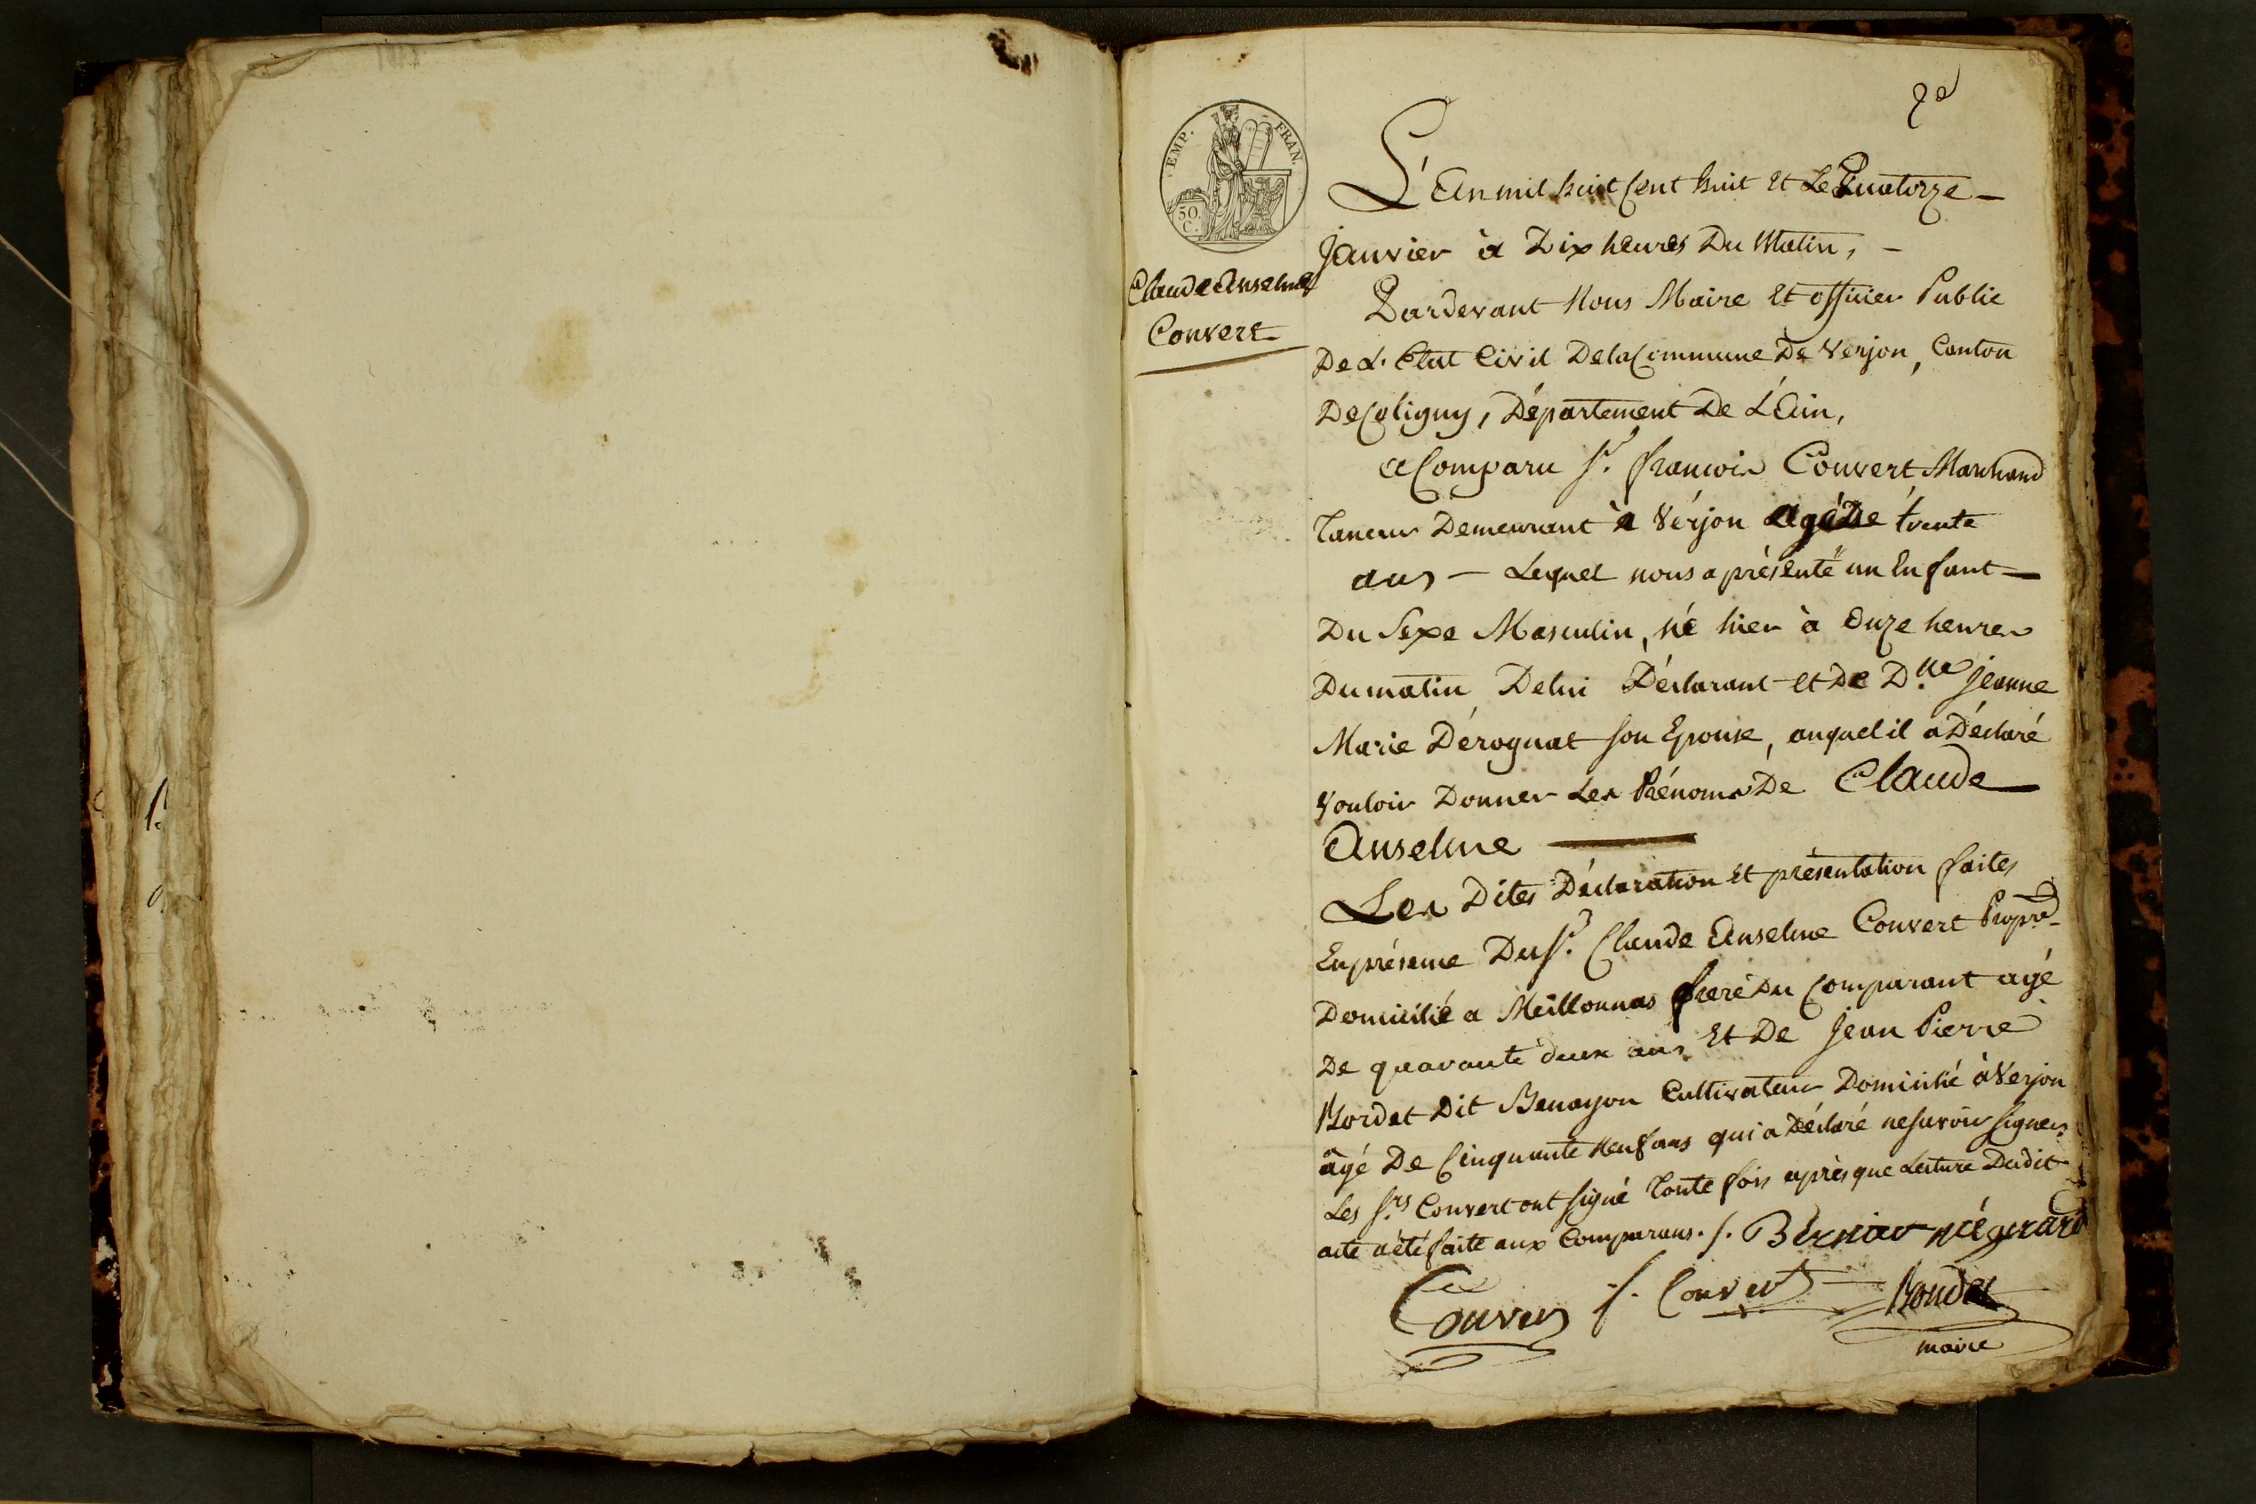 EMP. FRAN.
50.
C.
Claude Anselme
Convert
L'An mil huit Cent huit et Le Quatorze —
Janvier à Dix heures Du Matin, —
Pardevant Nous Maire Et officier Public
De L'Etat Civil De la Commune De Verjon, Canton
De Coligny, Département De L'Ain,
a Comparu Sr. francois Convert Marchand
Taneur Demeurant à Verjon agé De trente
ans — Lequel nous a présenté un Enfant —
Du Sexe Masculin, né hier à Onze heures
Du matin De lui Déclarant et De Dlle Jeanne
Marie Dérognat Son Epouse, auquel il a Déclaré
Vouloir Donner Les Prénoms De Claude
Anselme
Les Dites Déclaration Et présentation faites
En présence Du Sr. Claude Anselme Convert Proprre
Domicilié a Meillonnas frere Du Comparant agé
De quarante deux ans Et De Jean Pierre
Bordet Dit Benayon Cultivateur Domicilié à Verjon
âgé De Cinquante Neuf ans qui a Déclaré ne savoir Signer
Les Srs Convert ont Signé Toute fois après que Lecture Dudit
acte a été faite aux Comparans. /. Bernier née gerard
Convert f. Convert Boudet
maire